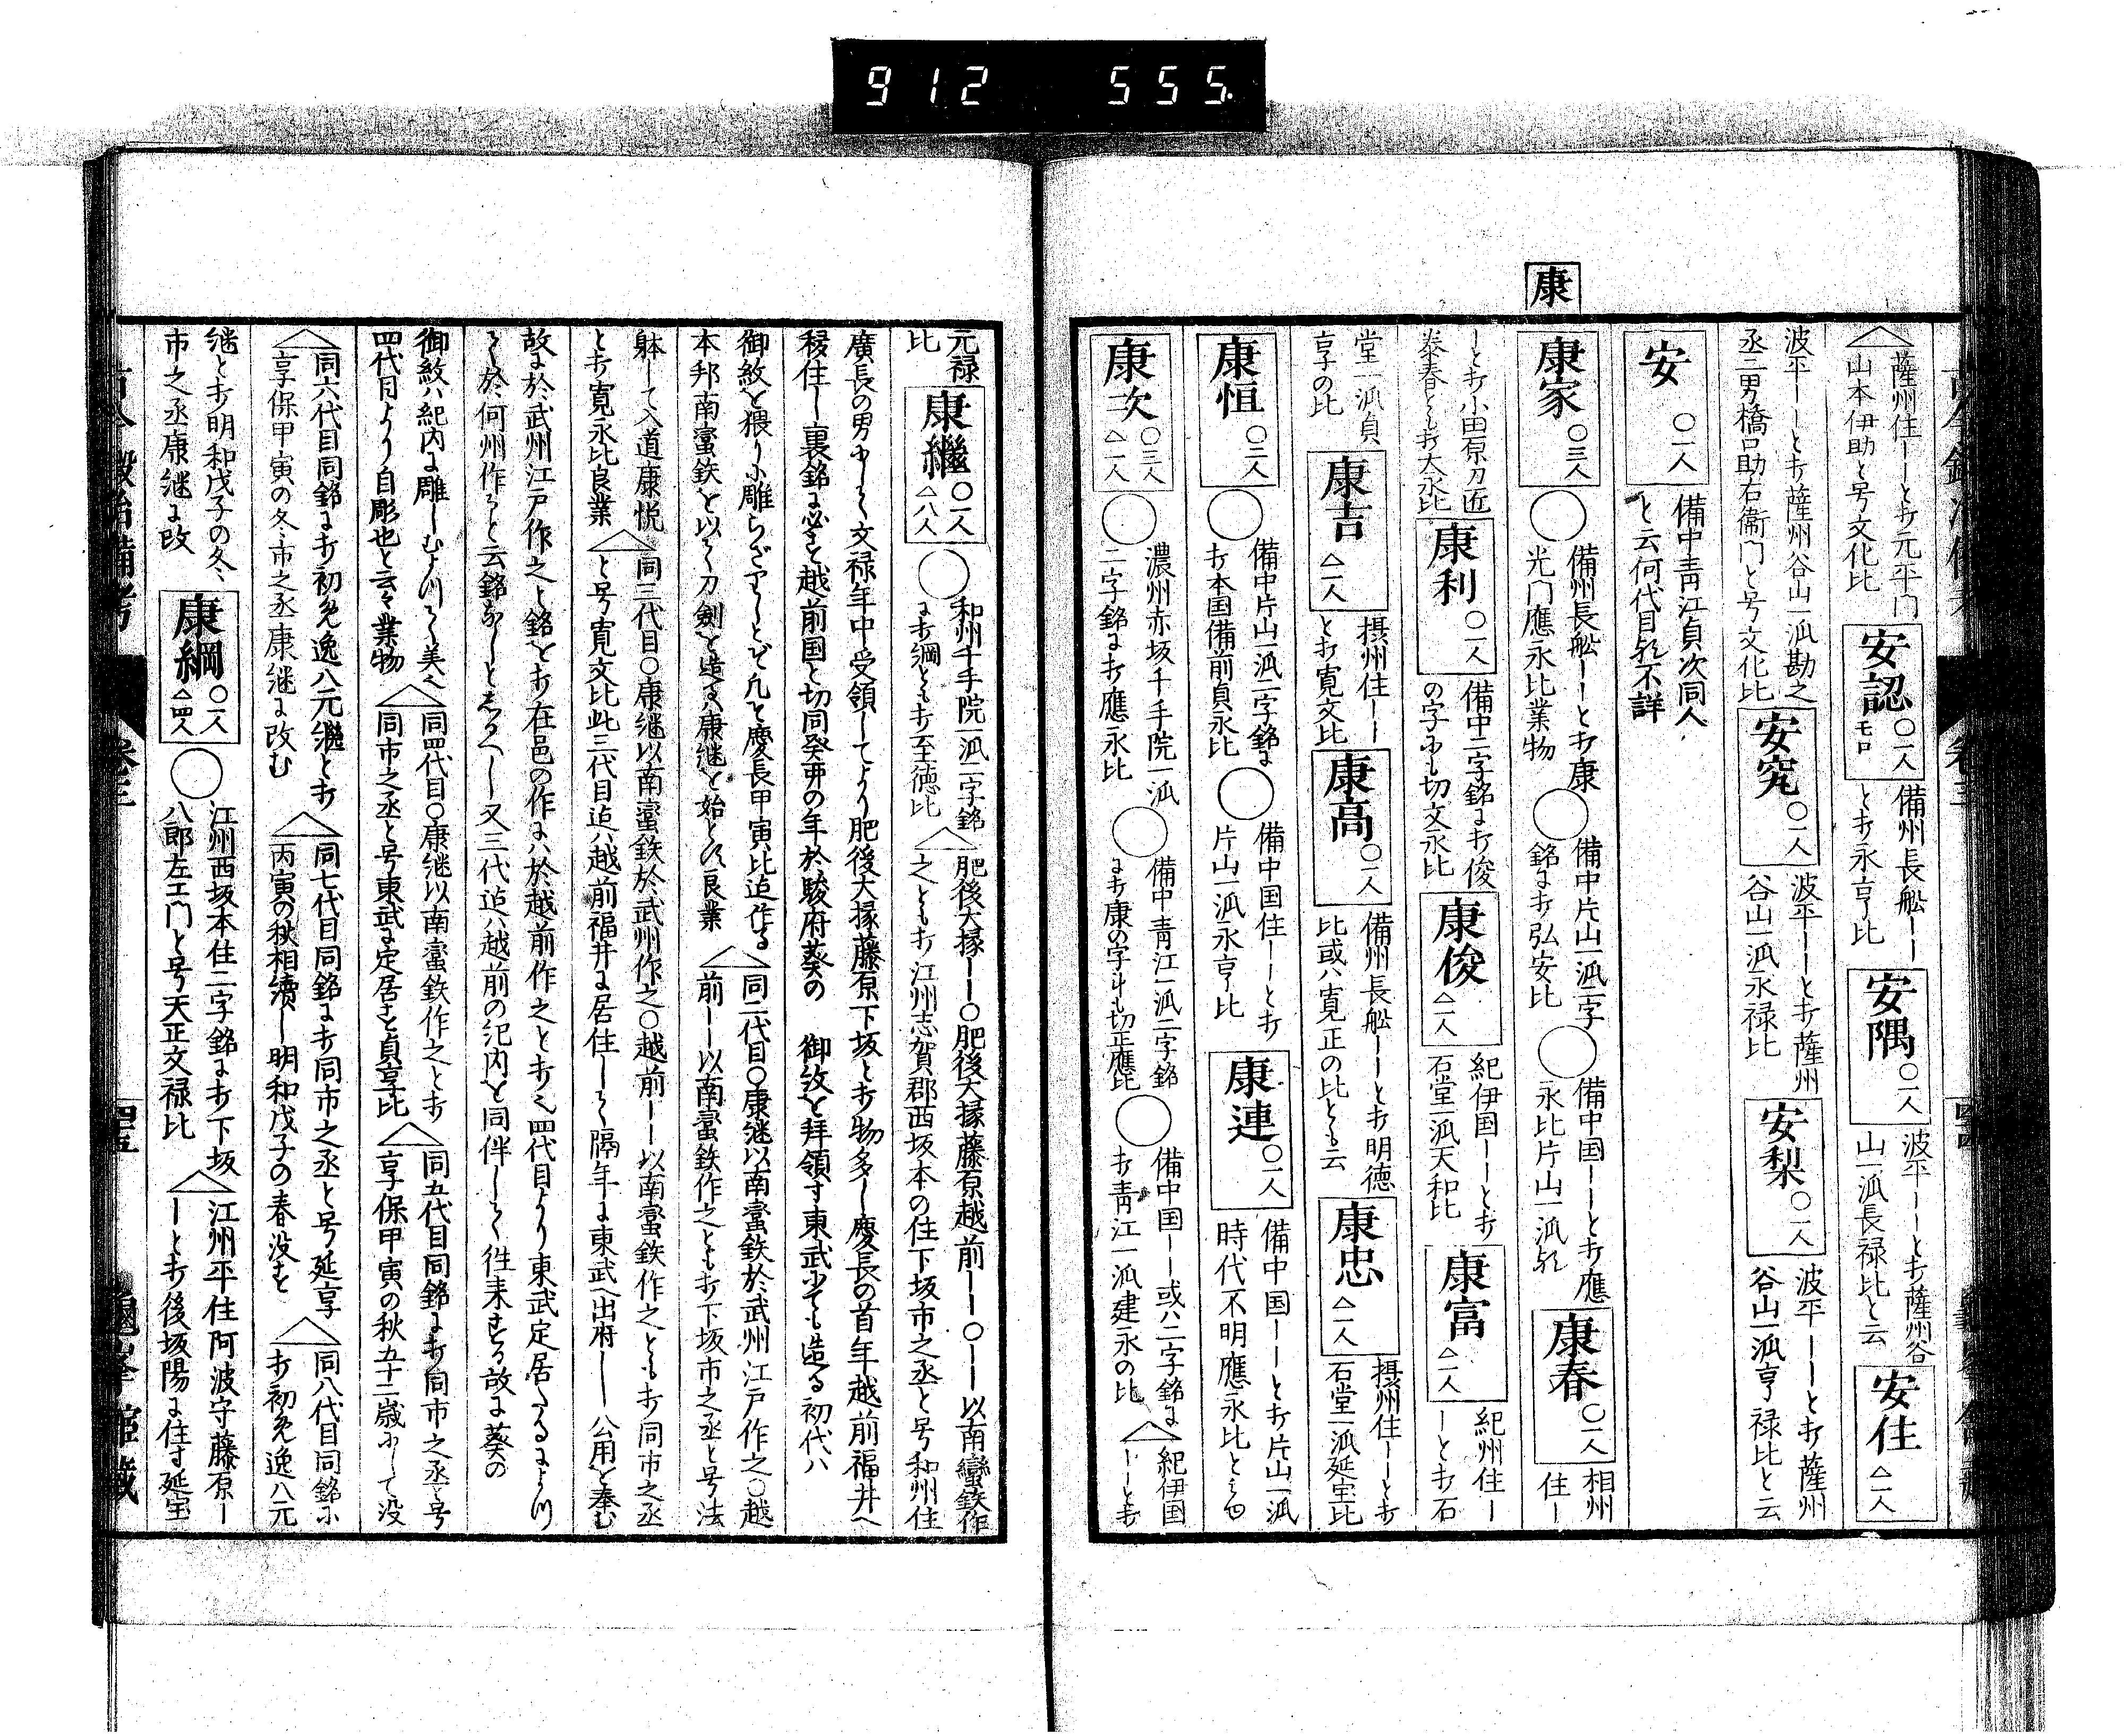 912 555.
康
薩州住――と打元平門
山本伊助と号文化比
安認 〇一人 モロ
備州長舩――
と打永亨比
安隅 〇一人
波平――と打薩州谷
山一派長禄比と云
安住 △一人
波平――と打薩州谷山一派勘之
丞二男橋口助右衛門と号文化比
安究 〇一人
波平――と打薩州
谷山一派永禄比
安梨 〇一人
波平――と打薩州
谷山一派亨禄比と云
安 〇一人
備中青江貞次同人
と云何代目歟不詳
康家 〇三人
備州長舩――と打康
光門應永比業物
備中片山一派二字
銘に打弘安比
備中国――と打應
永比片山一派歟
康春 〇一人
相州
住―
―と打小田原刀匠
泰春とも打大永比
康利 〇一人
備中二字銘に打俊
の字にも切文永比
康俊 △一人
紀伊国――と打
石堂一派天和比
康富 △一人
紀州住―
―と打石
堂一派貞
亨の比
康吉 △一人
摂州住――
と打寛文比
康高 〇一人
備州長舩――と打明徳
比或ハ寛正の比とも云
康忠 △一人
摂州住――と打
石堂一派延宝比
康恒 〇二人
備中片山一派一字銘に
打本国備前貞永比
備中国住――と打
片山一派永亨比
康連 〇一人
備中国――と打片山一派
時代不明應永比と云
康次 〇三人 △一人
濃州赤坂千手院一派
二字銘に打應永比
備中青江一派二字銘
に打康の字斗も切正應比
備中国――或ハ二字銘に
打青江一派建永の比
紀伊国
――と打
元禄
比
康繼 〇一人 △八人
和州千手院一派二字銘
に打綱とも打至徳比
肥後大掾――〇肥後大掾藤原越前――〇――以南蠻鉄作
之とも打江州志賀郡西坂本の住下坂市之丞と号和州住
廣長の男にして文禄年中受領してより肥後大掾藤原下坂と打物多し慶長の首年越前福井へ
移住し裏銘に必す越前国と切同癸丑の年於駿府葵の 御紋を拝領す東武にても造る初代ハ
御紋を猥りに雕らざりしとぞ凡そ慶長甲寅比迠作る
本邦南蠻鉄を以て刀劍を造るハ康継を始とす良業
同二代目〇康継以南蠻鉄於武州江戸作之〇越
前――以南蠻鉄作之とも打下坂市之丞と号法
躰して入道康悦
と打寛永比良業
同三代目〇康継以南蠻鉄於武州作之〇越前――以南蠻鉄作之とも打同市之丞
と号寛文比此三代目迠ハ越前福井に居住して隔年に東武へ出府し 公用を奉む
故に於武州江戸作之と銘を打在邑の作にハ於越前作之と打之四代目より東武定居たるによつ
て於何州作ると云銘なしとしるへし又三代迠ハ越前の紀内を同伴して徃来する故に葵の
御紋ハ紀内に雕しむよつて美也
四代目より自彫也と云々業物
同四代目〇康継以南蠻鉄作之と打
同市之丞と号東武に定居す貞享比
同五代目同銘に打同市之丞と号
享保甲寅の秋五十二歳にして没
同六代目同銘に打初免逸八元繼と打
享保甲寅の冬市之丞康継に改む
同七代目同銘に打同市之丞と号延享
丙寅の秋相續し明和戊子の春没す
同八代目同銘に
打初免逸八元
継と打明和戊子の冬
市之丞康継に改
康綱 〇一人 △四人
江州西坂本住二字銘に打下坂
八郎左エ門と号天正文禄比
江州平住阿波守藤原―
―と打後坂陽に住す延宝
古今鍛冶備考 卷三 四五 龜峯館藏